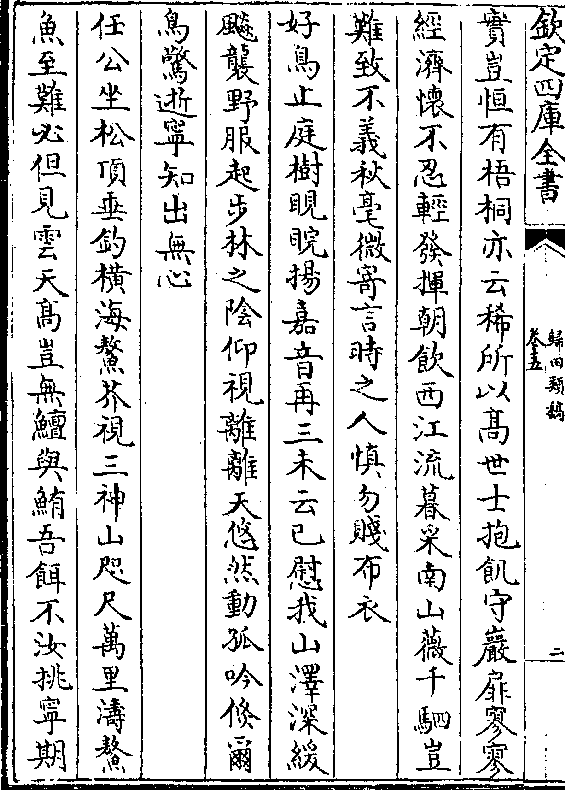 欽定四庫全書
歸田類稿
卷五
二
實豈恒有梧桐亦云稀所以髙世士抱飢守巖扉寥寥
經濟懷不忍輕發揮朝飲西江流暮采南山薇千駟豈
難致不義秋毫微寄言時之人慎勿賤布衣
好鳥止庭樹睍睆揚嘉音再三未云已慰我山澤深緩
飈襲野服起步林之陰仰視離離天悠然動孤吟倐爾
鳥驚逝寧知出無心
任公坐松頂垂釣橫海鰲芥視三神山咫尺萬里濤鰲
魚至難必但見雲天髙豈無鱣與鮪吾餌不汝挑寧期